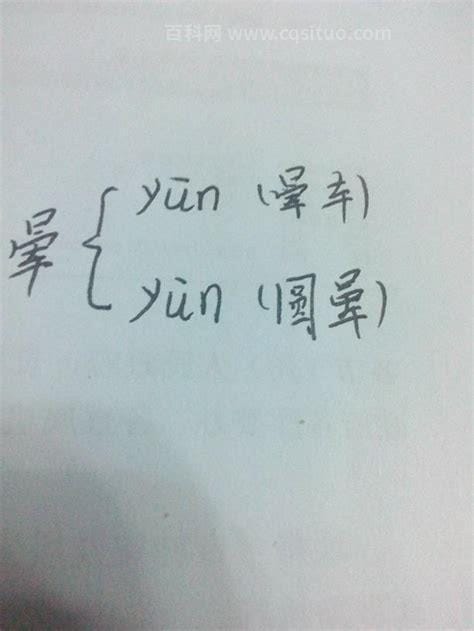 百科网 www.cqsituo.com
yūn (晕车)
晕
yùn (圆晕)